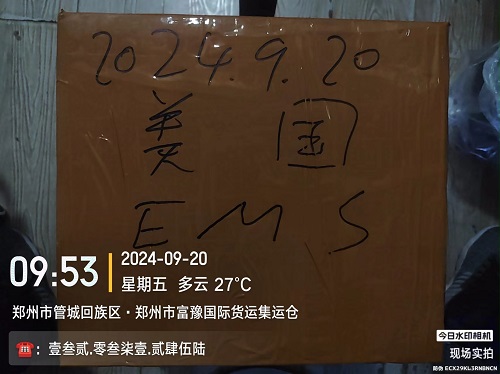 2024.9.20
美国
EMS
09:53
2024-09-20
星期五 多云 27°C
郑州市管城回族区·郑州市富豫国际货运集运仓
：壹叁贰.零叁柒壹.贰肆伍陆
今日水印相机
现场实拍
防伪 ECX29KL3RNBNCN